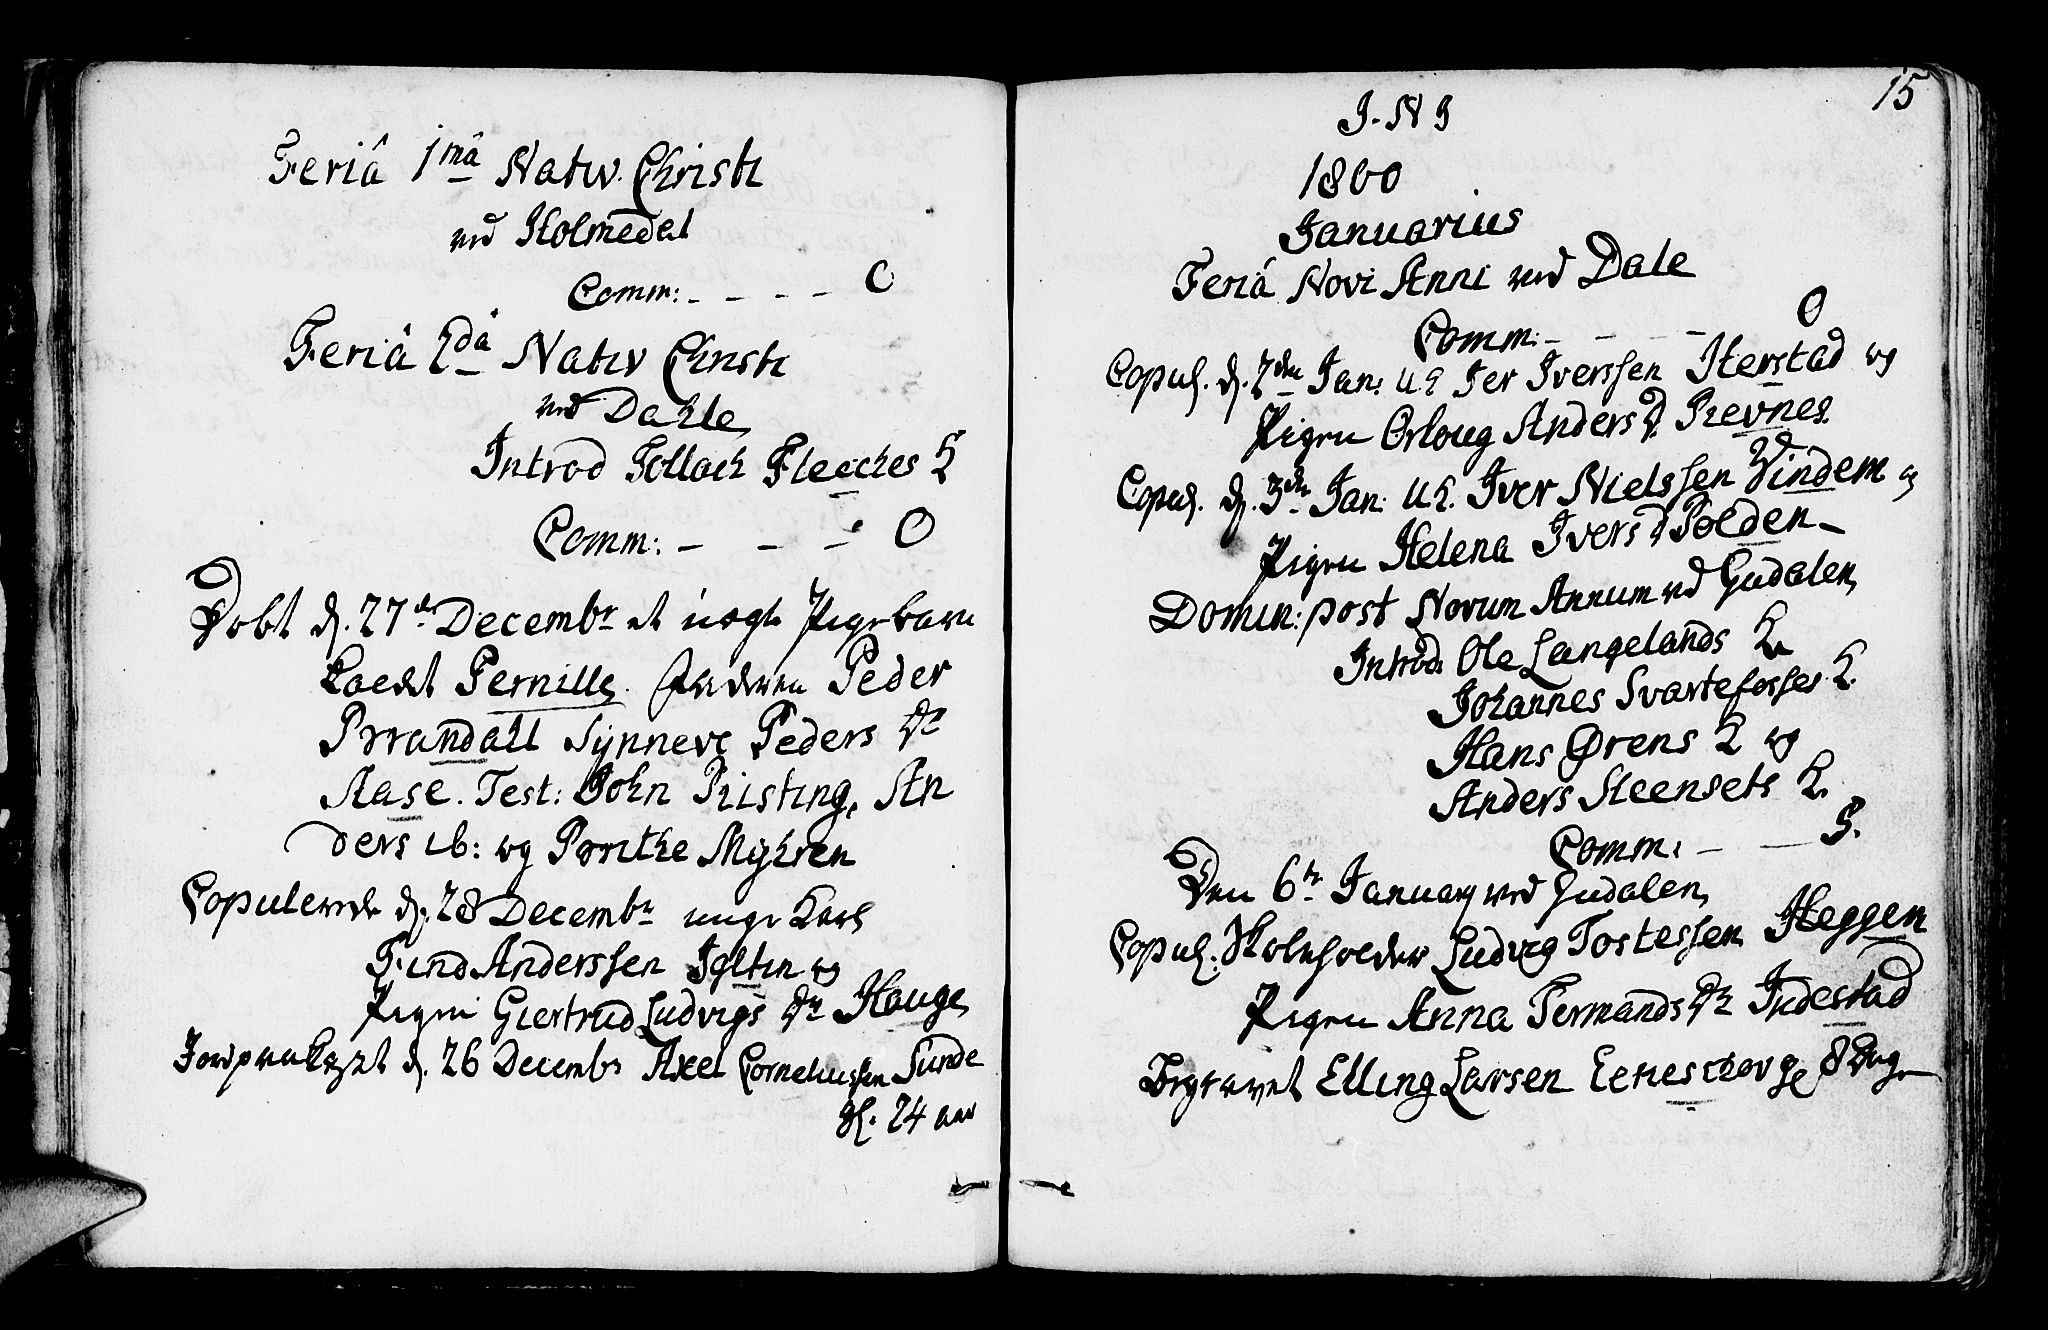 Feriâ 1mâ Nativ. Christi
ved Holmedal
Comm: - - - - 0
Feriâ 2dâ Nativ Christi
ved Dahle
Introd Tollach Fleeckes K
Comm: - - - 0
Døbt d. 27de Decembr et uægte Pigebarn
kaldt Pernille. Faderen Peder
Prrandahl Synneve Peders Dr
Aase. Test: John Risting, An
ders ib: og Brrithe Myhren
Copulerede d. 28 Decembr unge Karl
Find Anderssen Igltin og
Pigen Giertrud Ludvigs Dr Hauge
Jordpaakast d. 26 Decembr Axel Corneliussen Sunde
gl. 24 aar
15
I. N J
1800
Januarius
Feriâ Novi Anni ved Dale
Comm: - - - 0
Copul. d. 2den Jan: UK Ier Iverssen Herstad og
Pigen Orloug Anders D. Revnes
Copul. d. 3de Jan: UK. Iver Nielssen Vindem og
Pigen Helena Ivers D Polden
Domin: post Novum Annum ved Gudalen
Introd: Ole Langelands K.
Johannes Svartefosses K.
Hans Ørens K og
Anders Steensets K.
Comm: - - S.
Den 6te January ved Gudalen
Copul: Skoleholder Ludvig Tostessen Heggem
Pigen Anna Fermands Dr Indestad
Begravet Elling Larsen 8 Dage